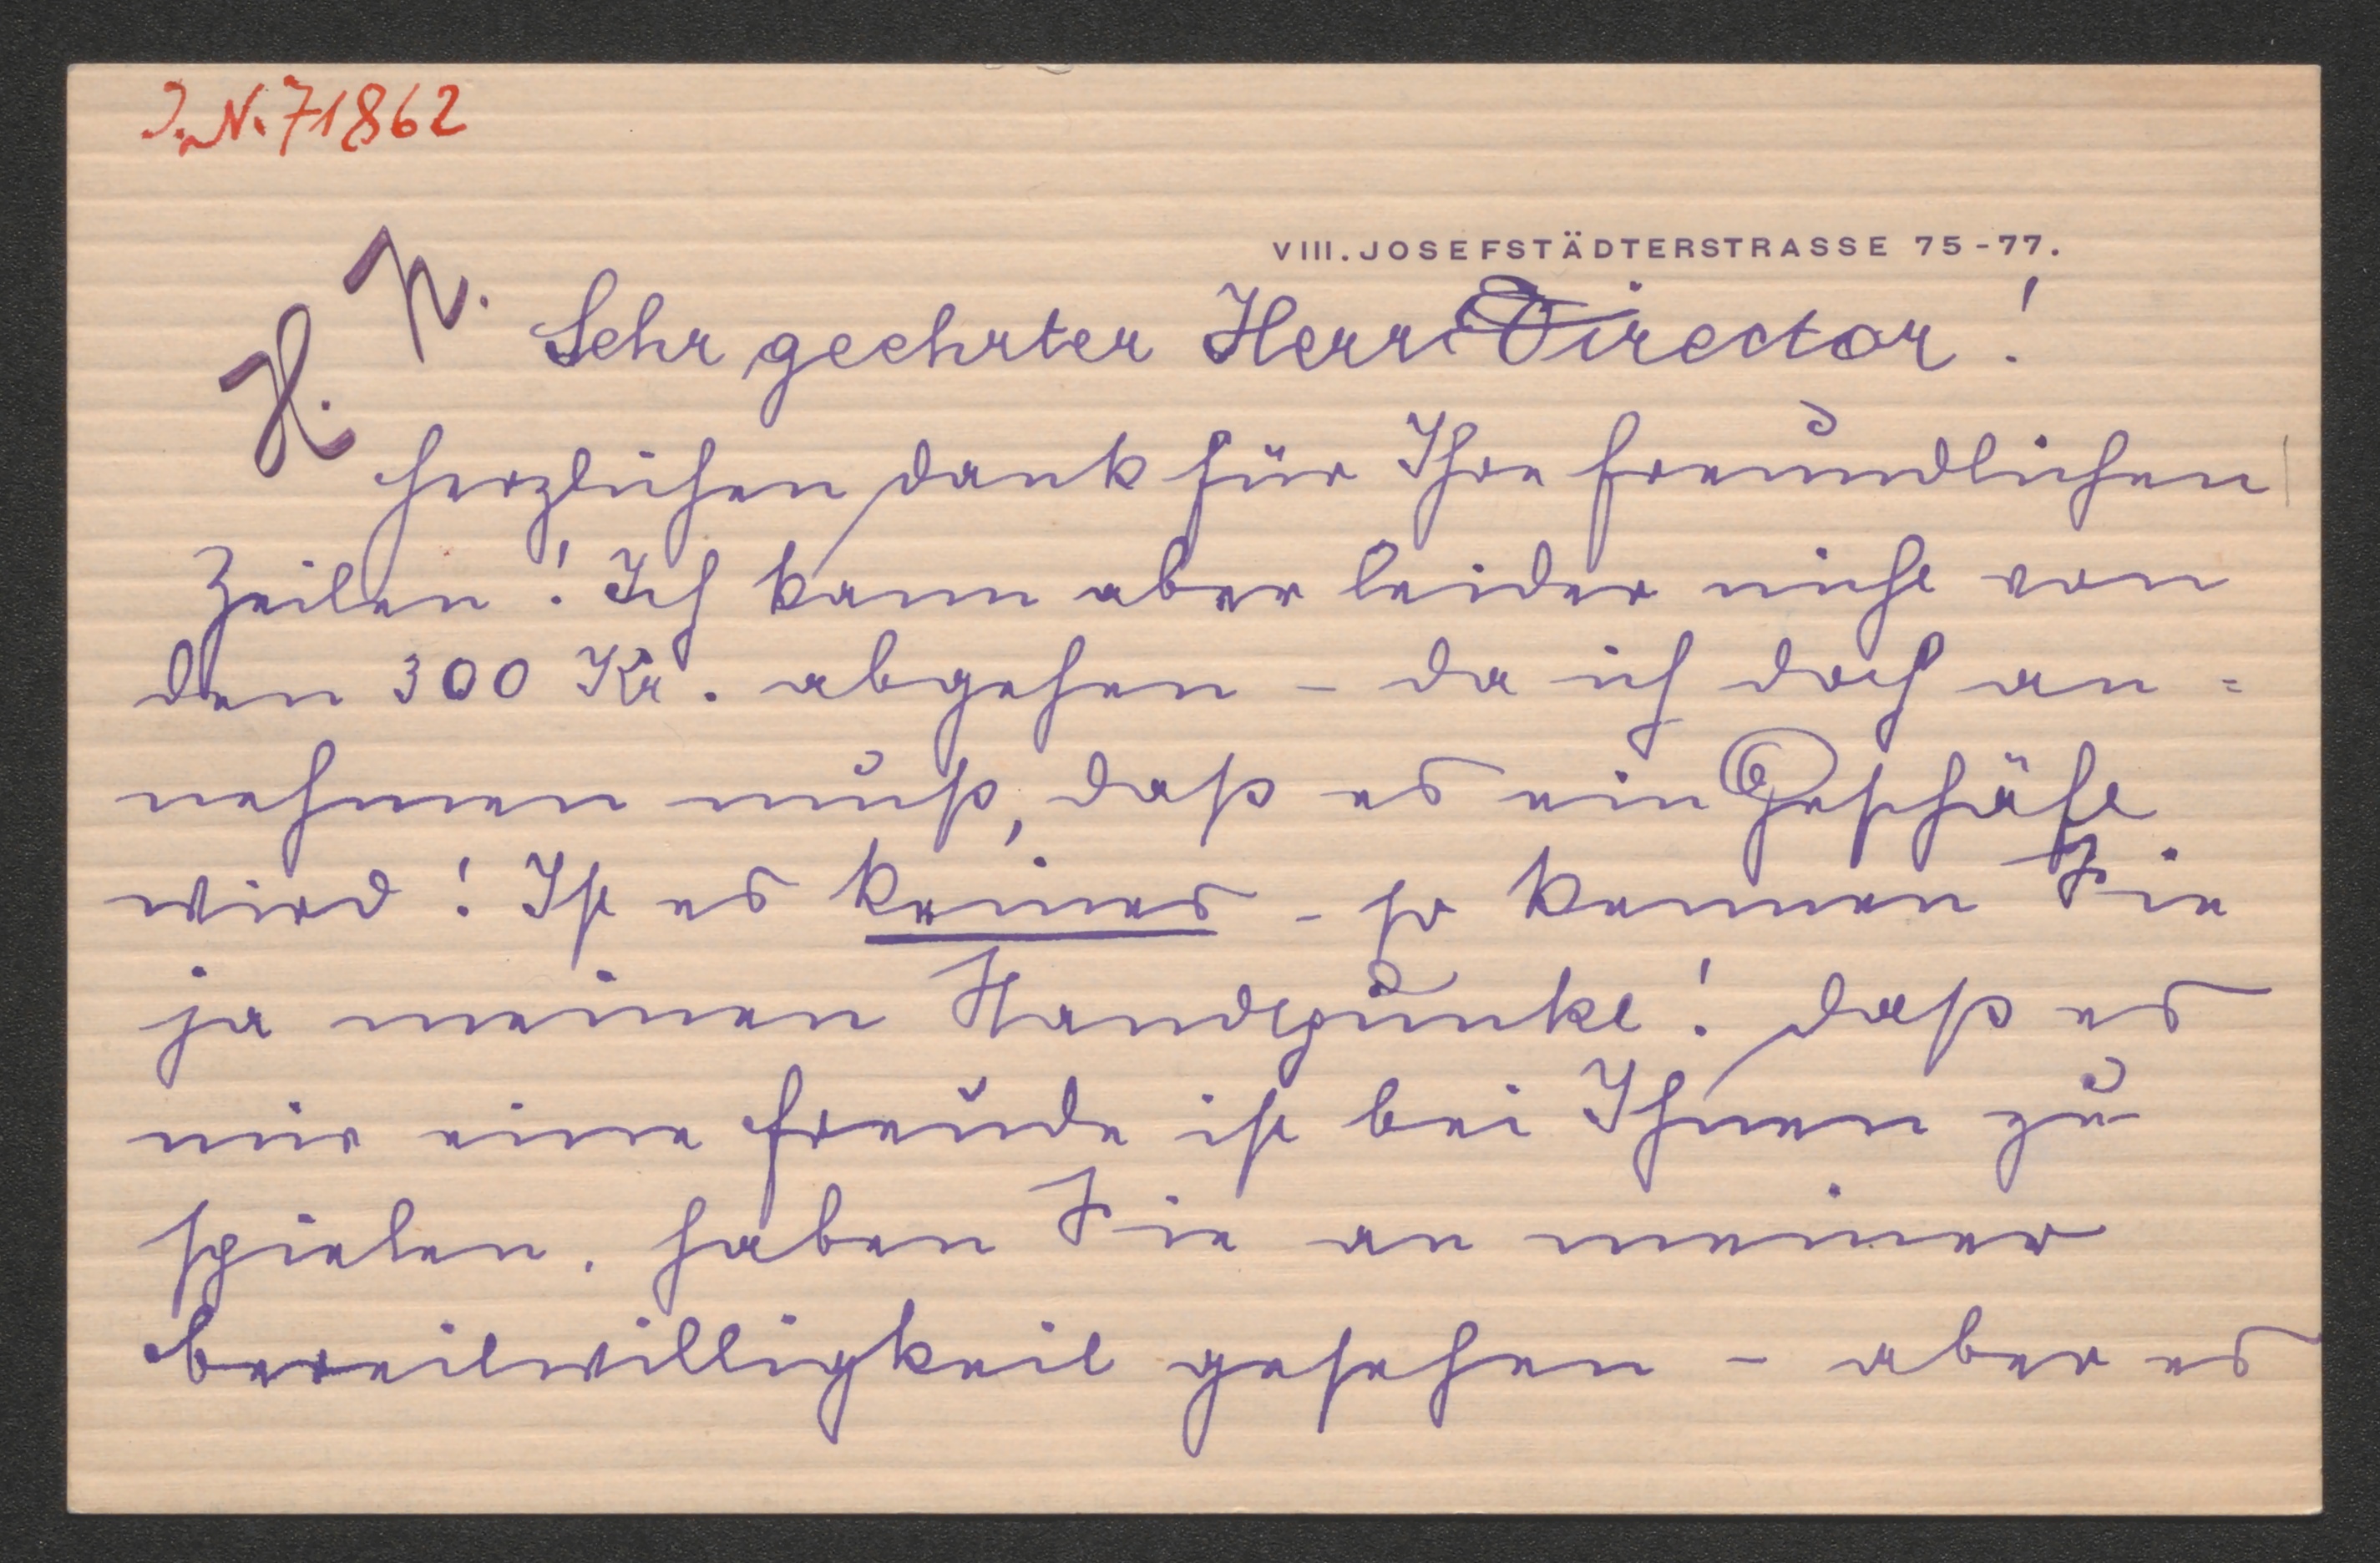 I.N. 71862
VIII. JOSEFSTÄDTERSTRASSE 75-77.
H. N.
Sehr geehrter Herr Director!
herzlichen Dank für Ihre freundlichen
Zeilen! Ich kann aber leider nicht von
den 300 Kr. abgehen – da ich doch an=
nehmen muß, daß es ein Geschäft
wird! Ist es keines – so kennen Sie
ja meinen Standpunkt! Daß es
mir eine Freude ist bei Ihnen zu
spielen. haben Sie an meiner
bereitwilligkeit gesehen – aber es